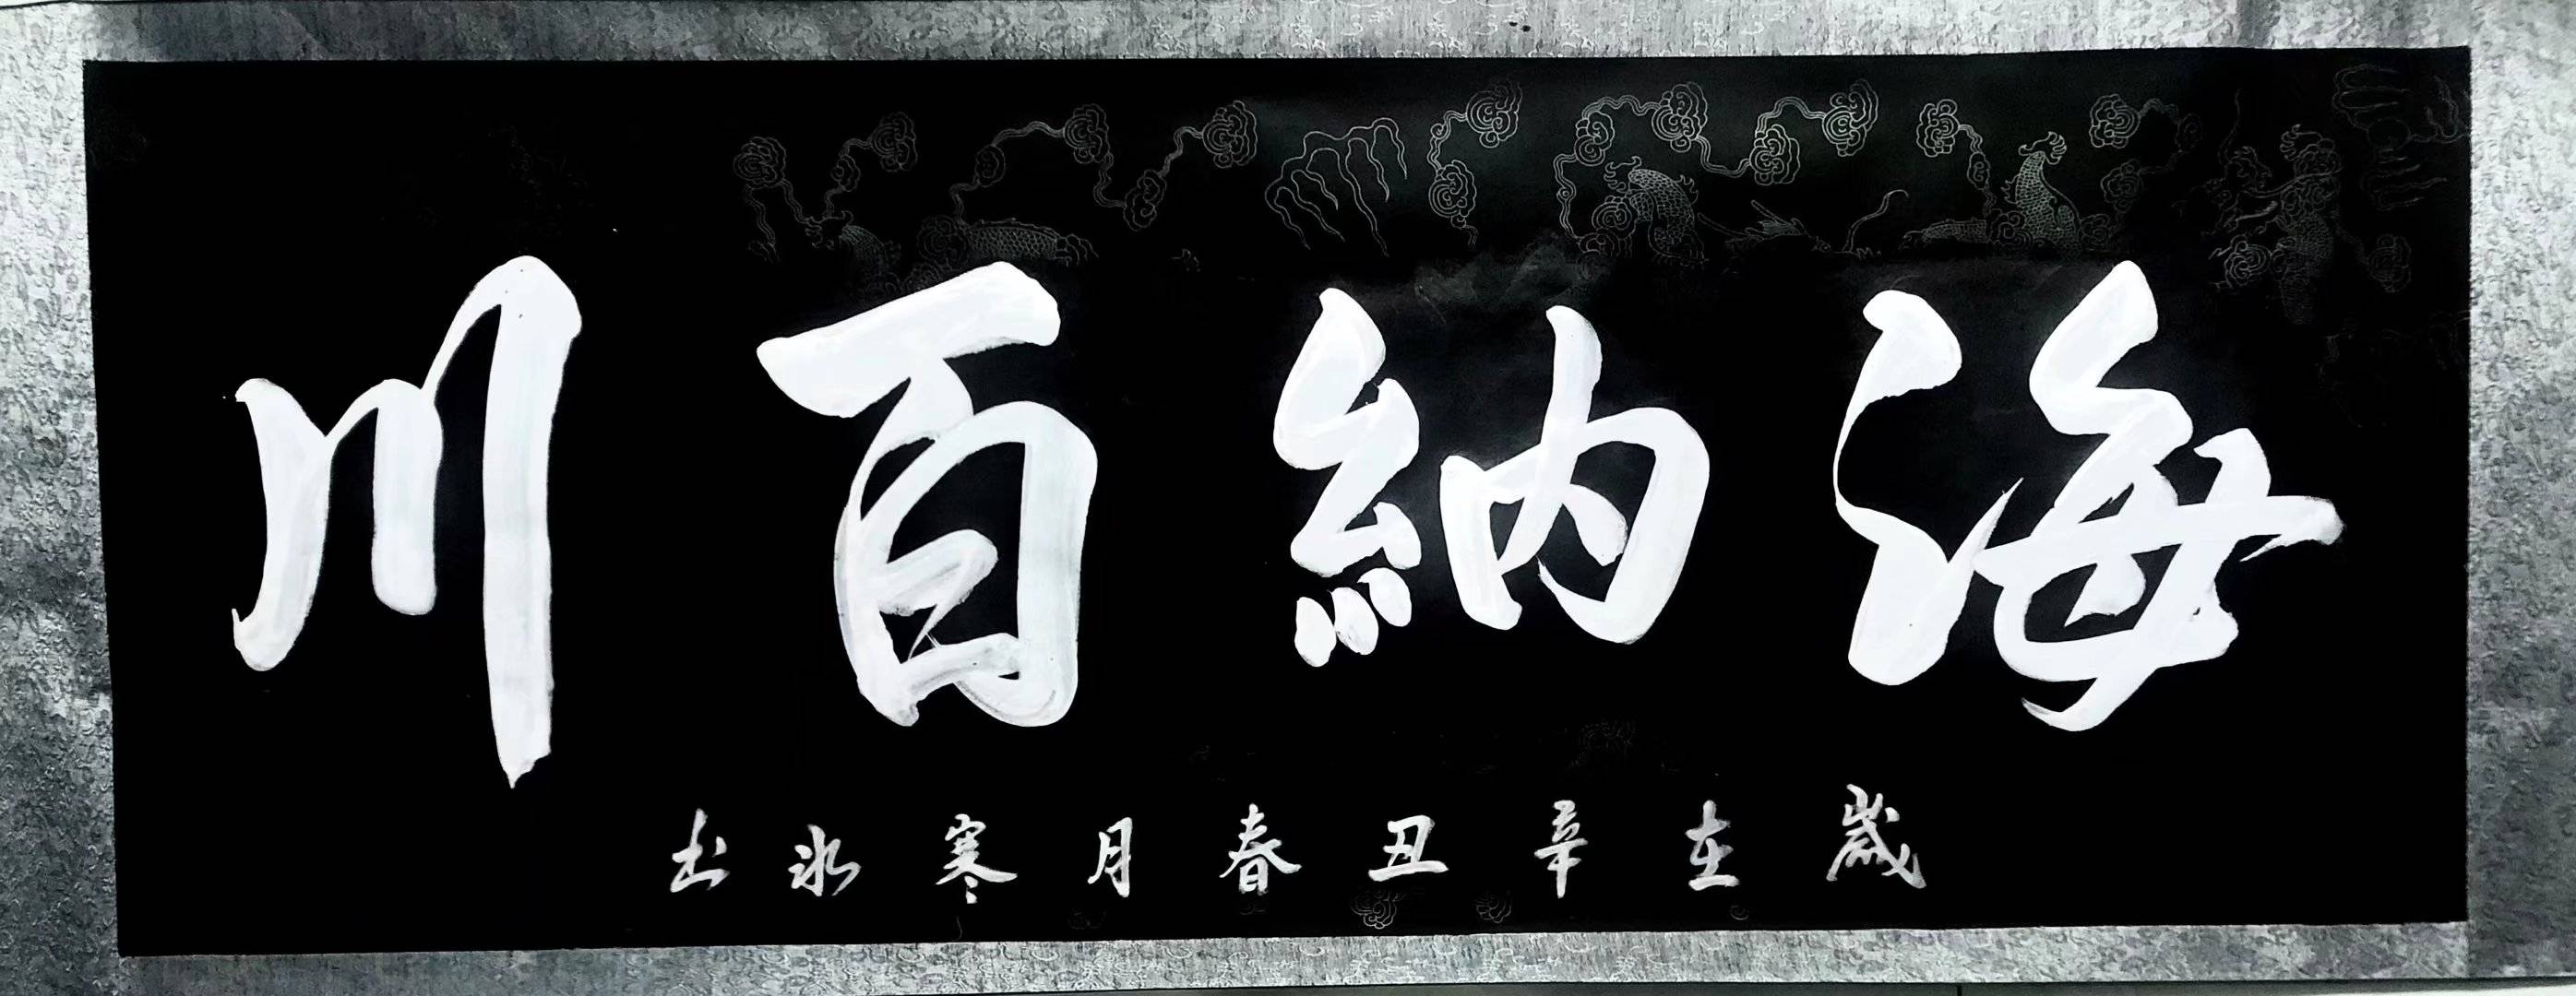 海納百川
歲在辛丑春月寒冰书